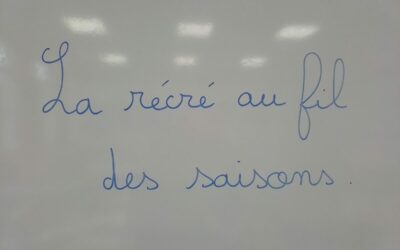 La récré au fil
des saisons.